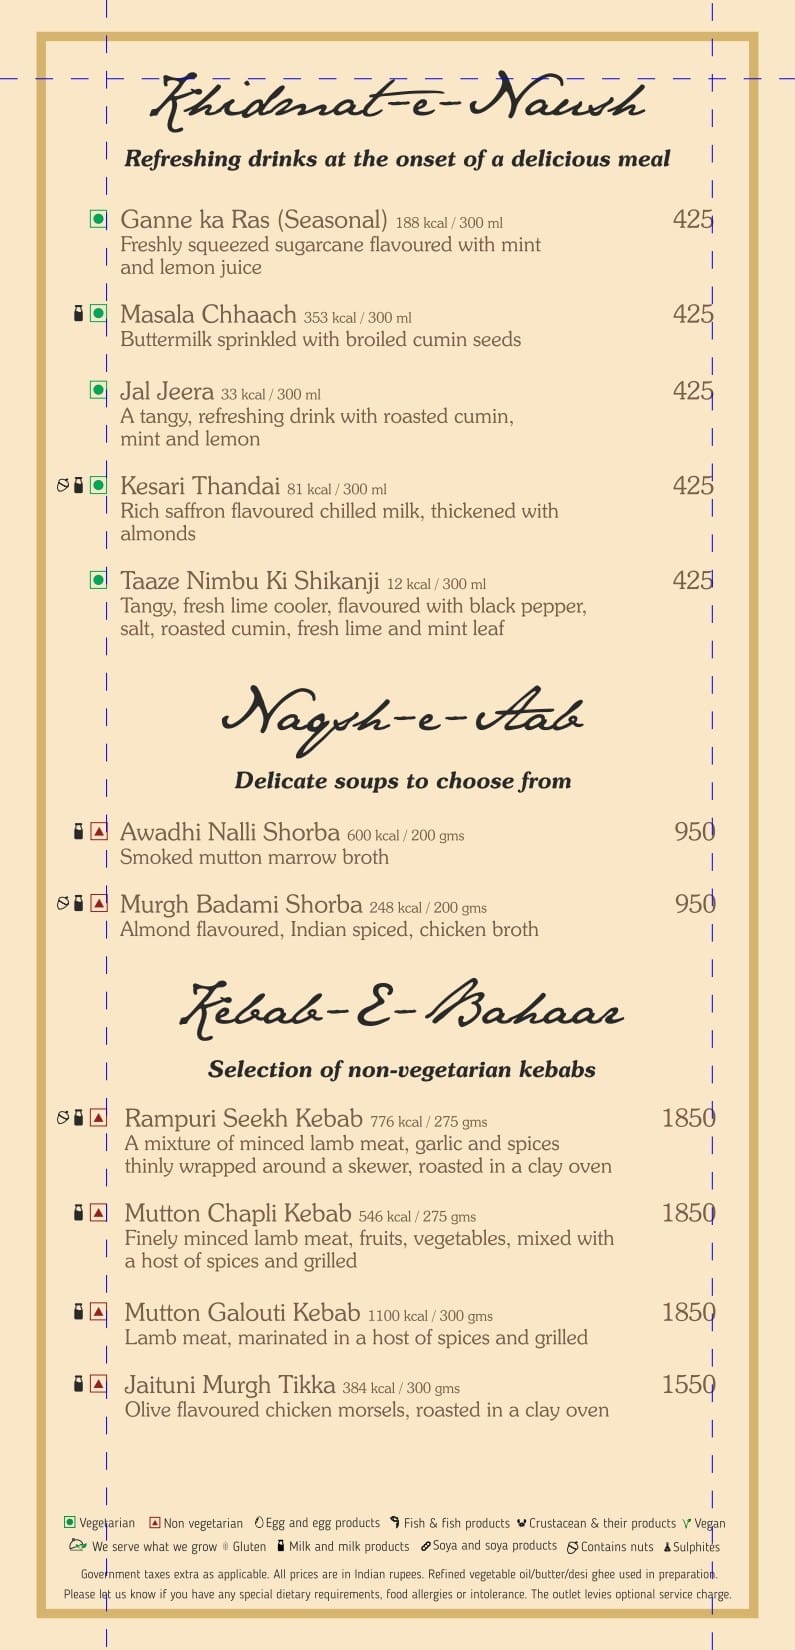 Khidmat-e-Naush
Refreshing drinks at the onset of a delicious meal
Ganne ka Ras (Seasonal) 188 kcal / 300 ml 425
Freshly squeezed sugarcane flavoured with mint
and lemon juice
Masala Chhaach 353 kcal / 300 ml 425
Buttermilk sprinkled with broiled cumin seeds
Jal Jeera 33 kcal / 300 ml 425
A tangy, refreshing drink with roasted cumin,
mint and lemon
Kesari Thandai 81 kcal / 300 ml 425
Rich saffron flavoured chilled milk, thickened with
almonds
Taaze Nimbu Ki Shikanji 12 kcal / 300 ml 425
Tangy, fresh lime cooler, flavoured with black pepper,
salt, roasted cumin, fresh lime and mint leaf
Naqsh-e-Aab
Delicate soups to choose from
Awadhi Nalli Shorba 600 kcal / 200 gms 950
Smoked mutton marrow broth
Murgh Badami Shorba 248 kcal / 200 gms 950
Almond flavoured, Indian spiced, chicken broth
Kebab-E-Bahaar
Selection of non-vegetarian kebabs
Rampuri Seekh Kebab 776 kcal / 275 gms 1850
A mixture of minced lamb meat, garlic and spices
thinly wrapped around a skewer, roasted in a clay oven
Mutton Chapli Kebab 546 kcal / 275 gms 1850
Finely minced lamb meat, fruits, vegetables, mixed with
a host of spices and grilled
Mutton Galouti Kebab 1100 kcal / 300 gms 1850
Lamb meat, marinated in a host of spices and grilled
Jaituni Murgh Tikka 384 kcal / 300 gms 1550
Olive flavoured chicken morsels, roasted in a clay oven
Vegetarian Non vegetarian Egg and egg products Fish & fish products Crustacean & their products Vegan
We serve what we grow Gluten Milk and milk products Soya and soya products Contains nuts Sulphites
Government taxes extra as applicable. All prices are in Indian rupees. Refined vegetable oil/butter/desi ghee used in preparation.
Please let us know if you have any special dietary requirements, food allergies or intolerance. The outlet levies optional service charge.